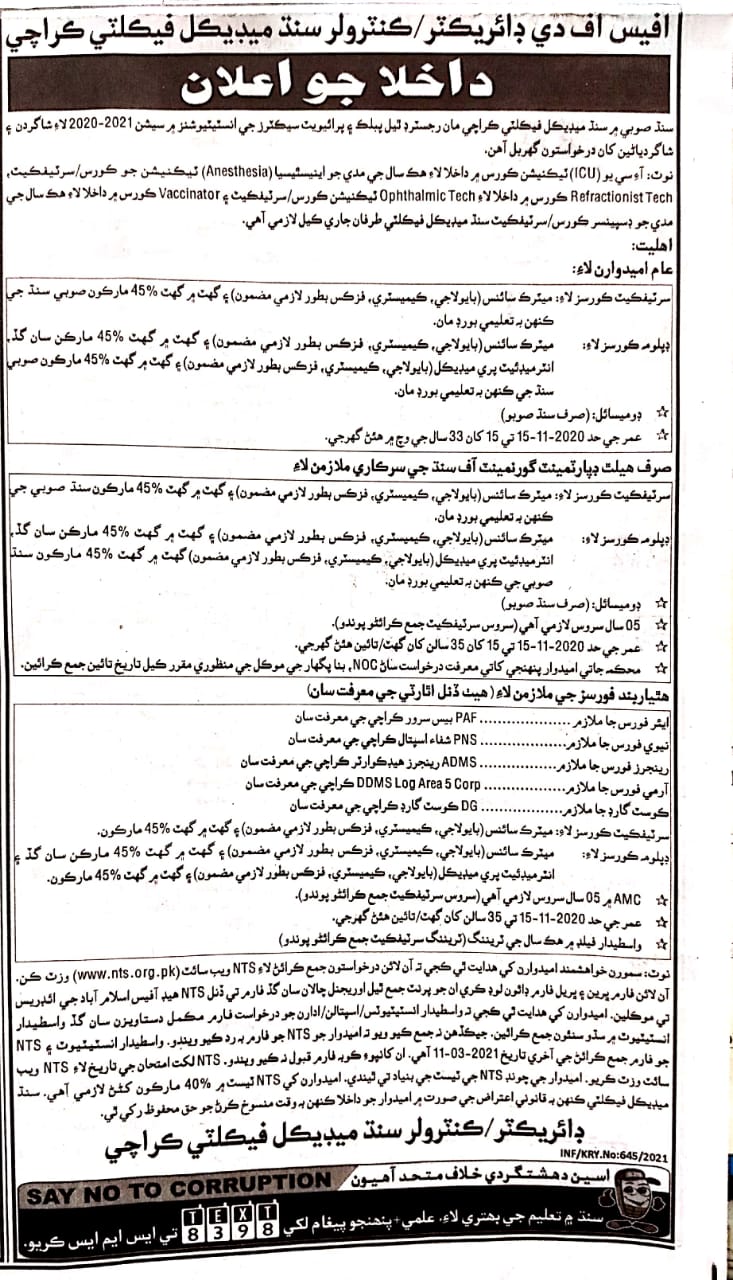 آفيس آف دي ڊائريڪٽر/ڪنٽرولر سنڌ ميڊيڪل فيڪلٽي ڪراچي
داخلا جو اعلان
سنڌ صوبي ۾ سنڌ ميڊيڪل فيڪلٽي ڪراچي مان رجسٽرڊ ٿيل پبلڪ ۽ پرائيويٽ سيڪٽرز جي انسٽيٽيوشنز ۾ سيشن 2021-2020 لاءِ شاگردن ۽
شاگردياڻين کان درخواستون گهربل آهن.
نوٽ: آءِ سي يو (ICU) ٽيڪنيشن ڪورس ۾ داخلا لاءِ هڪ سال جي مدي جو اينيسٿيسيا (Anesthesia) ٽيڪنيشن جو ڪورس/سرٽيفڪيٽ،
Refractionist Tech ڪورس ۾ داخلا لاءِ Ophthalmic Tech ٽيڪنيشن ڪورس/سرٽيفڪيٽ ۽ Vaccinator ڪورس ۾ داخلا لاءِ هڪ سال جي
مدي جو ڊسپينسر ڪورس/سرٽيفڪيٽ سنڌ ميڊيڪل فيڪلٽي طرفان جاري ڪيل لازمي آهي.
اهليت:
عام اميدوارن لاءِ:
سرٽيفڪيٽ ڪورسز لاءِ: ميٽرڪ سائنس (بايولاجي، ڪيميسٽري، فزڪس بطور لازمي مضمون) ۽ گهٽ ۾ گهٽ 45% مارڪون صوبي سنڌ جي
ڪنهن به تعليمي بورڊ مان.
ڊپلومہ ڪورسز لاءِ: ميٽرڪ سائنس (بايولاجي، ڪيميسٽري، فزڪس بطور لازمي مضمون) ۽ گهٽ ۾ گهٽ 45% مارڪن سان گڏ،
انٽرميڊئيٽ پري ميڊيڪل (بايولاجي، ڪيميسٽري، فزڪس بطور لازمي مضمون) ۽ گهٽ ۾ گهٽ 45% مارڪون صوبي
سنڌ جي ڪنهن به تعليمي بورڊ مان.
☆ ڊوميسائل: (صرف سنڌ صوبو)
☆ عمر جي حد 2020-11-15 تي 15 کان 33 سال جي وچ ۾ هئڻ گهرجي.
صرف هيلٿ ڊپارٽمينٽ گورنمينٽ آف سنڌ جي سرڪاري ملازمن لاءِ
سرٽيفڪيٽ ڪورسز لاءِ: ميٽرڪ سائنس (بايولاجي، ڪيميسٽري، فزڪس بطور لازمي مضمون) ۽ گهٽ ۾ گهٽ 45% مارڪون سنڌ صوبي جي
ڪنهن به تعليمي بورڊ مان.
ڊپلومہ ڪورسز لاءِ: ميٽرڪ سائنس (بايولاجي، ڪيميسٽري، فزڪس بطور لازمي مضمون) ۽ گهٽ ۾ گهٽ 45% مارڪن سان گڏ،
انٽرميڊئيٽ پري ميڊيڪل (بايولاجي، ڪيميسٽري، فزڪس بطور لازمي مضمون) گهٽ ۾ گهٽ 45% مارڪون سنڌ
صوبي جي ڪنهن به تعليمي بورڊ مان.
☆ ڊوميسائل: (صرف سنڌ صوبو)
☆ 05 سال سروس لازمي آهي (سروس سرٽيفڪيٽ جمع ڪرائڻو پوندو).
☆ عمر جي حد 2020-11-15 تي 15 کان 35 سالن کان گهٽ/تائين هئڻ گهرجي.
☆ محڪمہ جاتي اميدوار پنهنجي کاتي معرفت درخواست ساڻ NOC، بنا پگهار جي موڪل جي منظوري مقرر ڪيل تاريخ تائين جمع ڪرائين.
هٿياربند فورسز جي ملازمن لاءِ (هيٺ ڏنل اٿارٽي جي معرفت سان)
ايئر فورس جا ملازم .................. PAF بيس سرور ڪراچي جي معرفت سان
نيوي فورس جا ملازم .................. PNS شفاء اسپتال ڪراچي جي معرفت سان
رينجرز فورس جا ملازم .................. ADMS رينجرز هيڊڪوارٽر ڪراچي جي معرفت سان
آرمي فورس جا ملازم .................. DDMS Log Area 5 Corp ڪراچي جي معرفت سان
ڪوسٽ گارڊ جا ملازم .................. DG ڪوسٽ گارڊ ڪراچي جي معرفت سان
سرٽيفڪيٽ ڪورسز لاءِ: ميٽرڪ سائنس (بايولاجي، ڪيميسٽري، فزڪس بطور لازمي مضمون) ۽ گهٽ ۾ گهٽ 45% مارڪون.
ڊپلومہ ڪورسز لاءِ: ميٽرڪ سائنس (بايولاجي، ڪيميسٽري، فزڪس بطور لازمي مضمون) ۽ گهٽ ۾ گهٽ 45% مارڪن سان گڏ ۽
انٽرميڊئيٽ پري ميڊيڪل (بايولاجي، ڪيميسٽري، فزڪس بطور لازمي مضمون) ۽ گهٽ ۾ گهٽ 45% مارڪون.
☆ AMC ۾ 05 سال سروس لازمي آهي (سروس سرٽيفڪيٽ جمع ڪرائڻو پوندو).
☆ عمر جي حد 2020-11-15 تي 35 سالن کان گهٽ/تائين هئڻ گهرجي.
☆ واسطيدار فيلڊ ۾ هڪ سال جي ٽريننگ (ٽريننگ سرٽيفڪيٽ جمع ڪرائڻو پوندو)
نوٽ: سمورن خواهشمند اميدوارن کي هدايت ٿي ڪجي تہ آن لائن درخواستون جمع ڪرائڻ لاءِ NTS ويب سائٽ (www.nts.org.pk) وزٽ ڪن.
آن لائن فارم ڀرين ۽ ڀريل فارم ڊائون لوڊ ڪري ان جو پرنٽ جمع ٿيل اوريجنل چالان سان گڏ فارم تي ڏنل NTS هيڊ آفيس اسلام آباد جي ائڊريس
تي موڪلين. اميدوارن کي هدايت ٿي ڪجي تہ واسطيدار انسٽيٽيوٽس/اسپتالن/ادارن جو درخواست فارم مڪمل دستاويزن سان گڏ واسطيدار
انسٽيٽيوٽ ۾ سڌو سنئون جمع ڪرائين. جيڪڏهن نہ جمع ڪيو ويو تہ اميدوار جو NTS جو فارم بہ رد ڪيو ويندو. واسطيدار انسٽيٽيوٽ ۽ NTS
جو فارم جمع ڪرائڻ جي آخري تاريخ 2021-03-11 آهي. ان کانپوءِ ڪوبہ فارم قبول نہ ڪيو ويندو. NTS لکت امتحان جي تاريخ لاءِ NTS ويب
سائٽ وزٽ ڪريو. اميدوار جي چونڊ NTS جي ٽيسٽ جي بنياد تي ٿيندي. اميدوارن کي NTS ٽيسٽ ۾ 40% مارڪون کڻڻ لازمي آهي. سنڌ
ميڊيڪل فيڪلٽي ڪنهن بہ قانوني اعتراض جي صورت ۾ اميدوار جو داخلا ڪنهن بہ وقت منسوخ ڪرڻ جو حق محفوظ رکي ٿي.
ڊائريڪٽر/ڪنٽرولر سنڌ ميڊيڪل فيڪلٽي ڪراچي
INF/KRY.No:645/2021
اسين دهشتگردي خلاف متحد آهيون
SAY NO TO CORRUPTION
سنڌ ۾ تعليم جي بهتري لاءِ، علمي+ پنهنجو پيغام لکي TEXT 8398 تي ايس ايم ايس ڪريو.